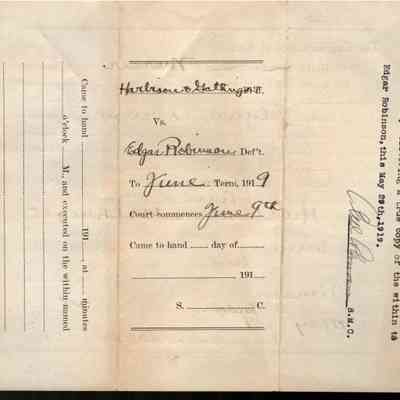 Harbison & Gathright Pl'ff.
Vs.
Edgar Robinson Def't.
To June Term, 1919
Court commences June 9th
Came to hand ...... day of
191
S. C.
Came to hand 191 , at minutes
o'clock M., and executed on the within named
a true copy of the within to
Edgar Robinson, this May 29th, 1919.
S.M.C.